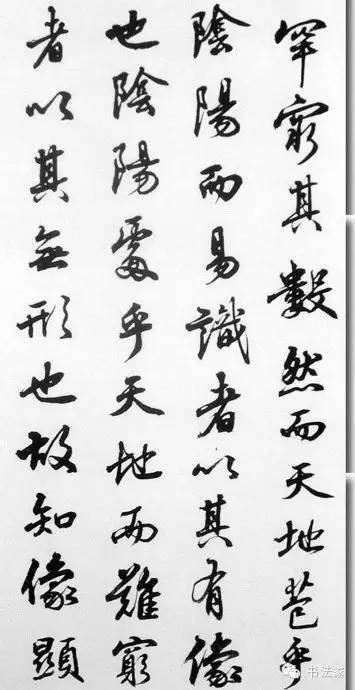 罕窮其數然而天地苞乎
陰陽而易識者以其有像
也陰陽處乎天地而難窮
者以其無形也故知像顯
书法家